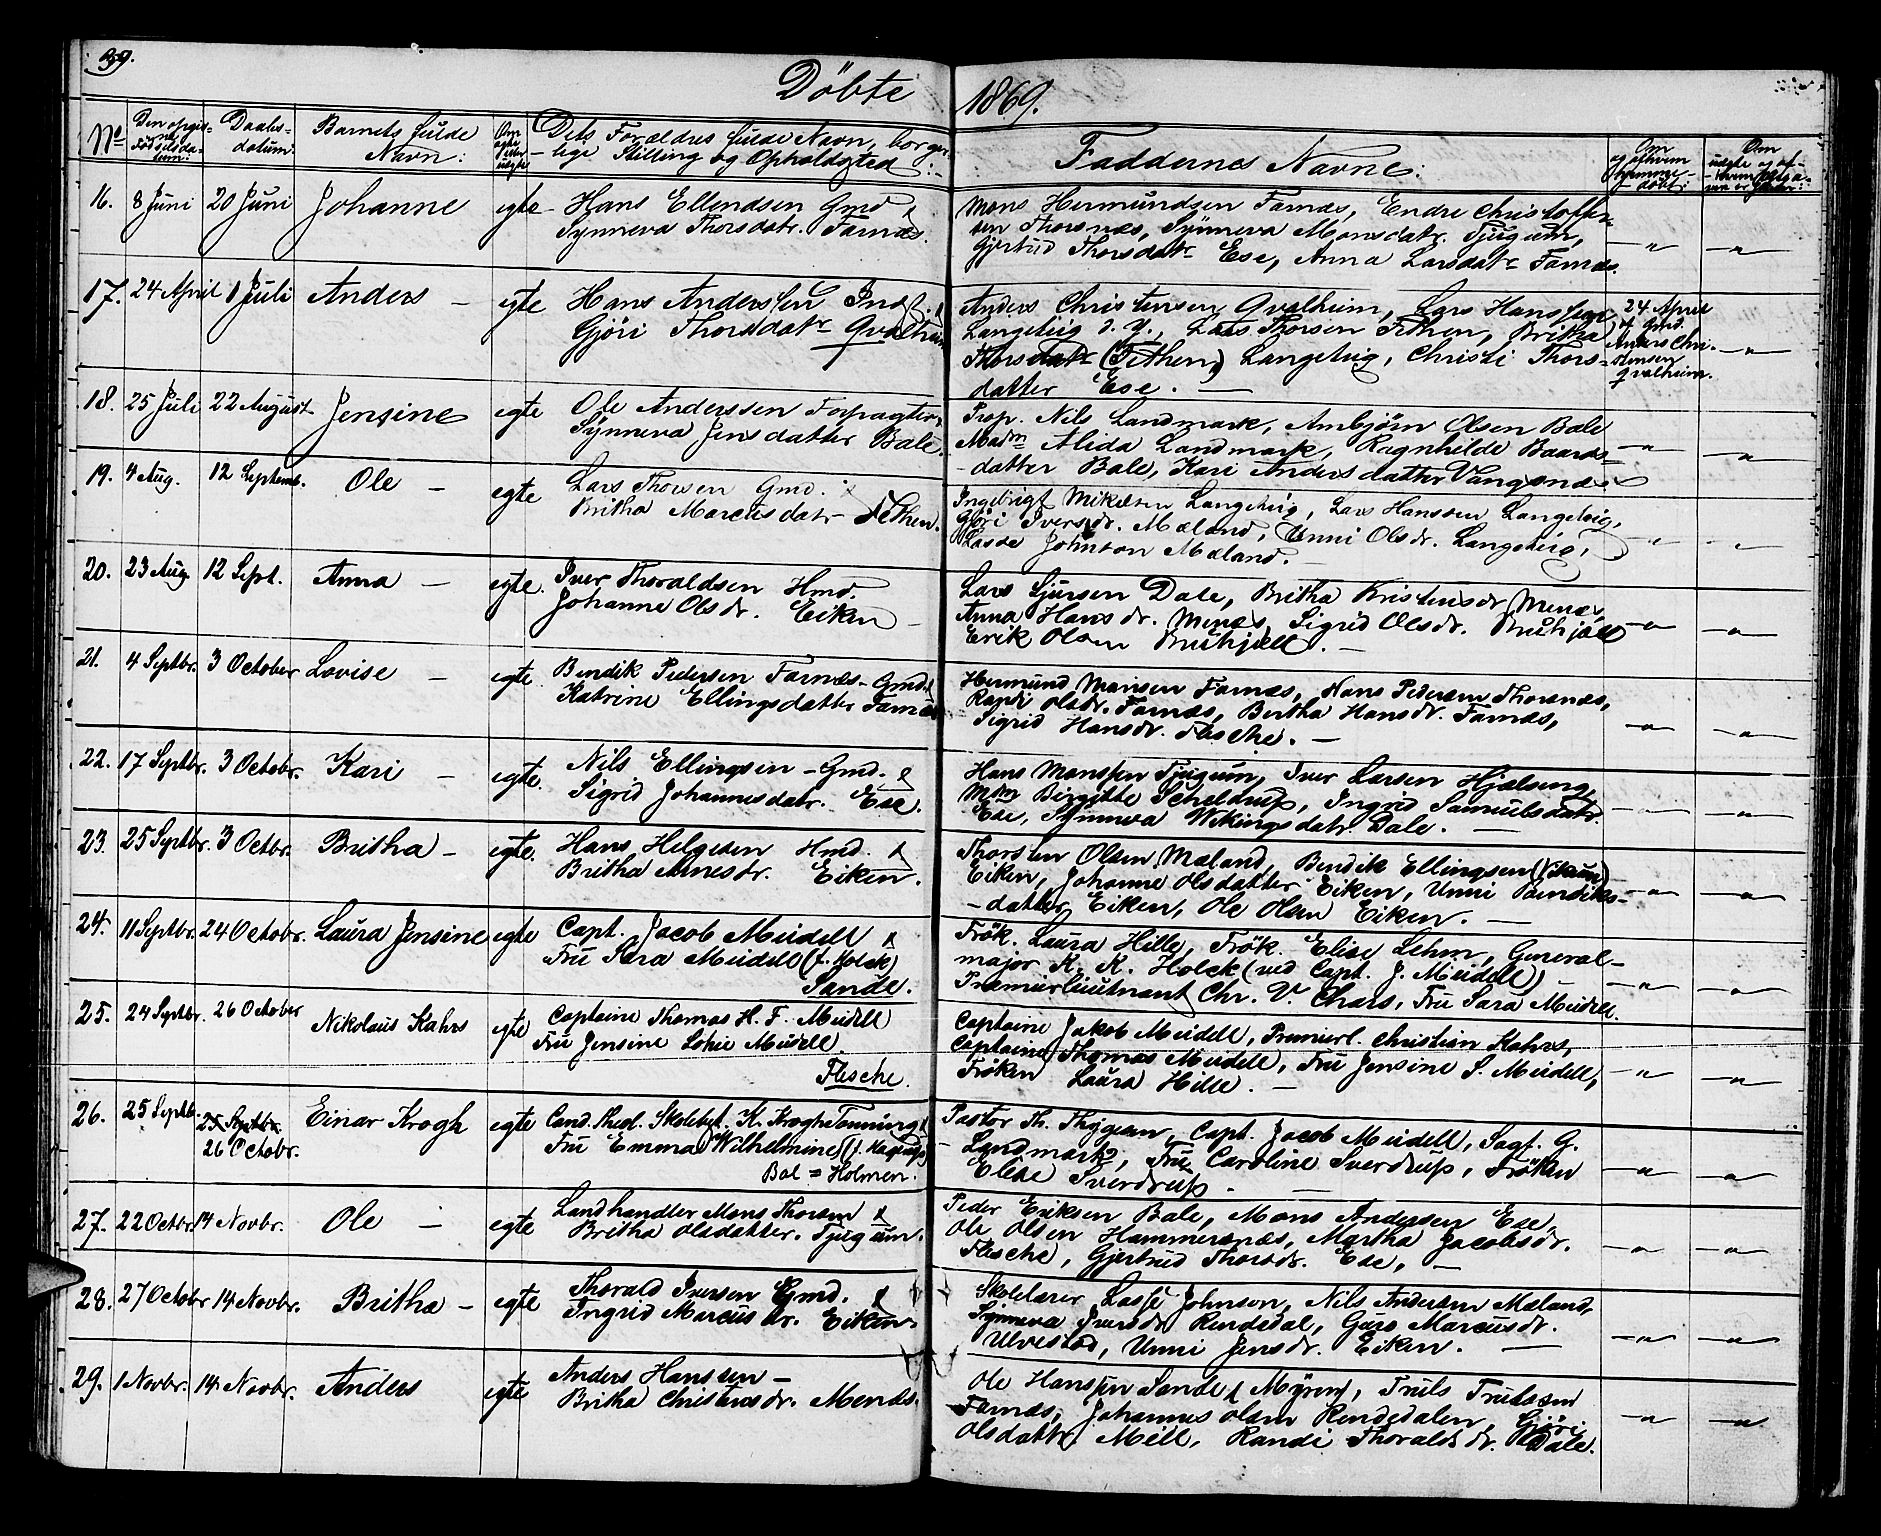 39.
Döbte 1869.
No
Den opgiv-
ne
Födselsda-
tum:
Daabs-
datum:
Barnets fulde
Navn:
Om
egte
eller
uegte
Dets Forældres fulde Navn, borger-
lige Stilling og Opholdssted:
Faddernes Navne:
Om
og af hvem
hjemme-
döbt:
Om
uegte og af-
16. 8 Juni 20 Juni Johanne egte Hans Ellendsen Gmd &
Synneva Thorsdatr. Farnæs.
Mons Hermundsen Farnæs, Endre Christoffer-
sen Thorsnæs, Synneva Monsdatr. Tjugum,
Gjertrud Thorsdatr Ese, Anna Larsdatr Farnæs.
— " — — " —
17. 24 April 1 Juli Anders — egte Hans Anderssen Ind. &
Gjöri Thorsdatr Qvalheim
Anders Christensen Qvalheim, Lars Hanssen
Langeteig d. y., Lars Thorsen Fethen, Britha
Thorsdatr (Fethen) Langeteig, Christi Thors-
datter Ese. —
24 April
af Gmd.
Anders Chri-
stensen
Qvalheim.
— " —
18. 25 Juli 22 August Jensine egte Ole Anderssen Forpagter &
Synneva Jensdatter Bale.
Prop. Nils Landmark, Ambjörn Olsen Bale
Madm Alida Landmark, Ragnhilde Baards-
datter Bale, Kari Andersdatter Vangsnæs
— " — — " —
19. 4 Aug. 12 Septemb. Ole — egte Lars Thorsen Gmd. &
Britha Marcusdatr Fethen.
Ingebrigt Mikelsen Langeteig, Lars Hanssen Langeteig,
Gjöri Iversdr. Mæland, Unni Olsdr. Langeteig,
Lasse Johnson Mæland.
— " — — " —
20. 23 Aug. 12 Sept. Anna — egte. Iver Thoraldsen Hmd.
Johanne Olsdr. Eiken —
Lars Sjursen Dale, Britha Kristensdr Menæs,
Anna Hansdr. Menæs, Sigrid Olsdr.
Erik Olsen
— " — — " —
21. 4 Septbr. 3 October Lovise — egte. Bendik Pedersen Farnæs — Gmd. &
Katrine Ellingsdatter Farnæs
Hermund Monsen Farnæs, Hans Pedersen Thorsnæs,
Randi Olsdr. Farnæs, Britha Hansdr. Farnæs,
Sigrid Hansdr. Flesche. —
— " — — " —
22. 17 Septbr. 3 Octobr. Kari — egte. Nils Ellingsen — Gmd. &
Sigrid Johannesdatr. Ese.
Hans Monssen Tjugum, Iver Larsen Hjelseng,
Mdm Birgitte Scheldrup, Ingrid Samuelsdatr.
Ese, Synneva Wikingsdatr. Dale. —
— " — — " —
23. 25 Septbr. 3 Octbr. Britha — egte. Hans Helgesen Hmd. &
Britha Arnesdr. Eiken.
Thorsten Olsen Mæland, Bendik Ellingsen
Eiken, Johanne Olsdatter Eiken, Unni Bendiks-
datter Eiken, Ole Olsen Eiken. —
— " — — " —
24. 11 Septbr. 24 Octobr. Laura Jensine egte Capt. Jacob Meidell &
Fru Sara Meidell (f. Holck)
Sande.
Frök. Laura Hille, Frök. Elise Lehm, General-
major K. K. Holck (ved Capt. J. Meidell)
Premierlieutnant Chr. V. Chars, Fru Sara Meidell.
— " — — " —
25. 24 Septbr. 26 October Nikolaus Kahrs egte Captaine Thomas H. F. Meidell
Fru Jensine Lokie Meidell
Flesche.
Captaine Jakob Meidell, Premierl. Christian Kahrs,
Captaine Thomas Meidell, Fru Jensine S. Meidell,
Fröken Laura Hille. —
— " — — " —
26. 25 Septb. 25 Septbr.
26 Octobr. Einar Krogh egte Cand. theol. Skolebst. K. Krogh Tonning &
Fru Emma Wilhelmine
Bal = Holmen.
Pastor Th. Thygesen, Capt. Jacob Meidell, Sagf. G.
Landmark, Fru Caroline Sverdrup, Fröken
Elise Sverdrup. —
— " — — " —
27. 22 Octbr 14 Novbr. Ole — egte Landhandler Mons Thorsen &
Britha Olsdatter. Tjugum.
Peder Eriksen Bale, Mons Andersen Ese,
Ole Olsen Hammersnæs, Martha Jacobsdr.
Flesche, Gjertrud Thorsdr. Ese, —
— " — — " —
28. 27 Octobr 14 Novbr. Britha — egte Thorald Iversen Gmd. &
Ingrid Marcusdr. Eiken
Skolelærer Lasse Johnson, Nils Andersen Mæland,
Synneva Iversdr Rendedal, Guro Marcusdr.
Ulvestad, Unni Jensdr. Eiken. —
— " — — " —
29. 1 Novbr. 14 Novbr. Anders egte Anders Hanssen —
Britha Christensdr. Menæs.
Ole Hanssen Sande (Myren), Truls Trulssen
Farnæs, Johannes Olsen Rendedalen, Gjöri
Olsdattr. Mell, Randi Thoraldsdr. Dale.
— " — — " —